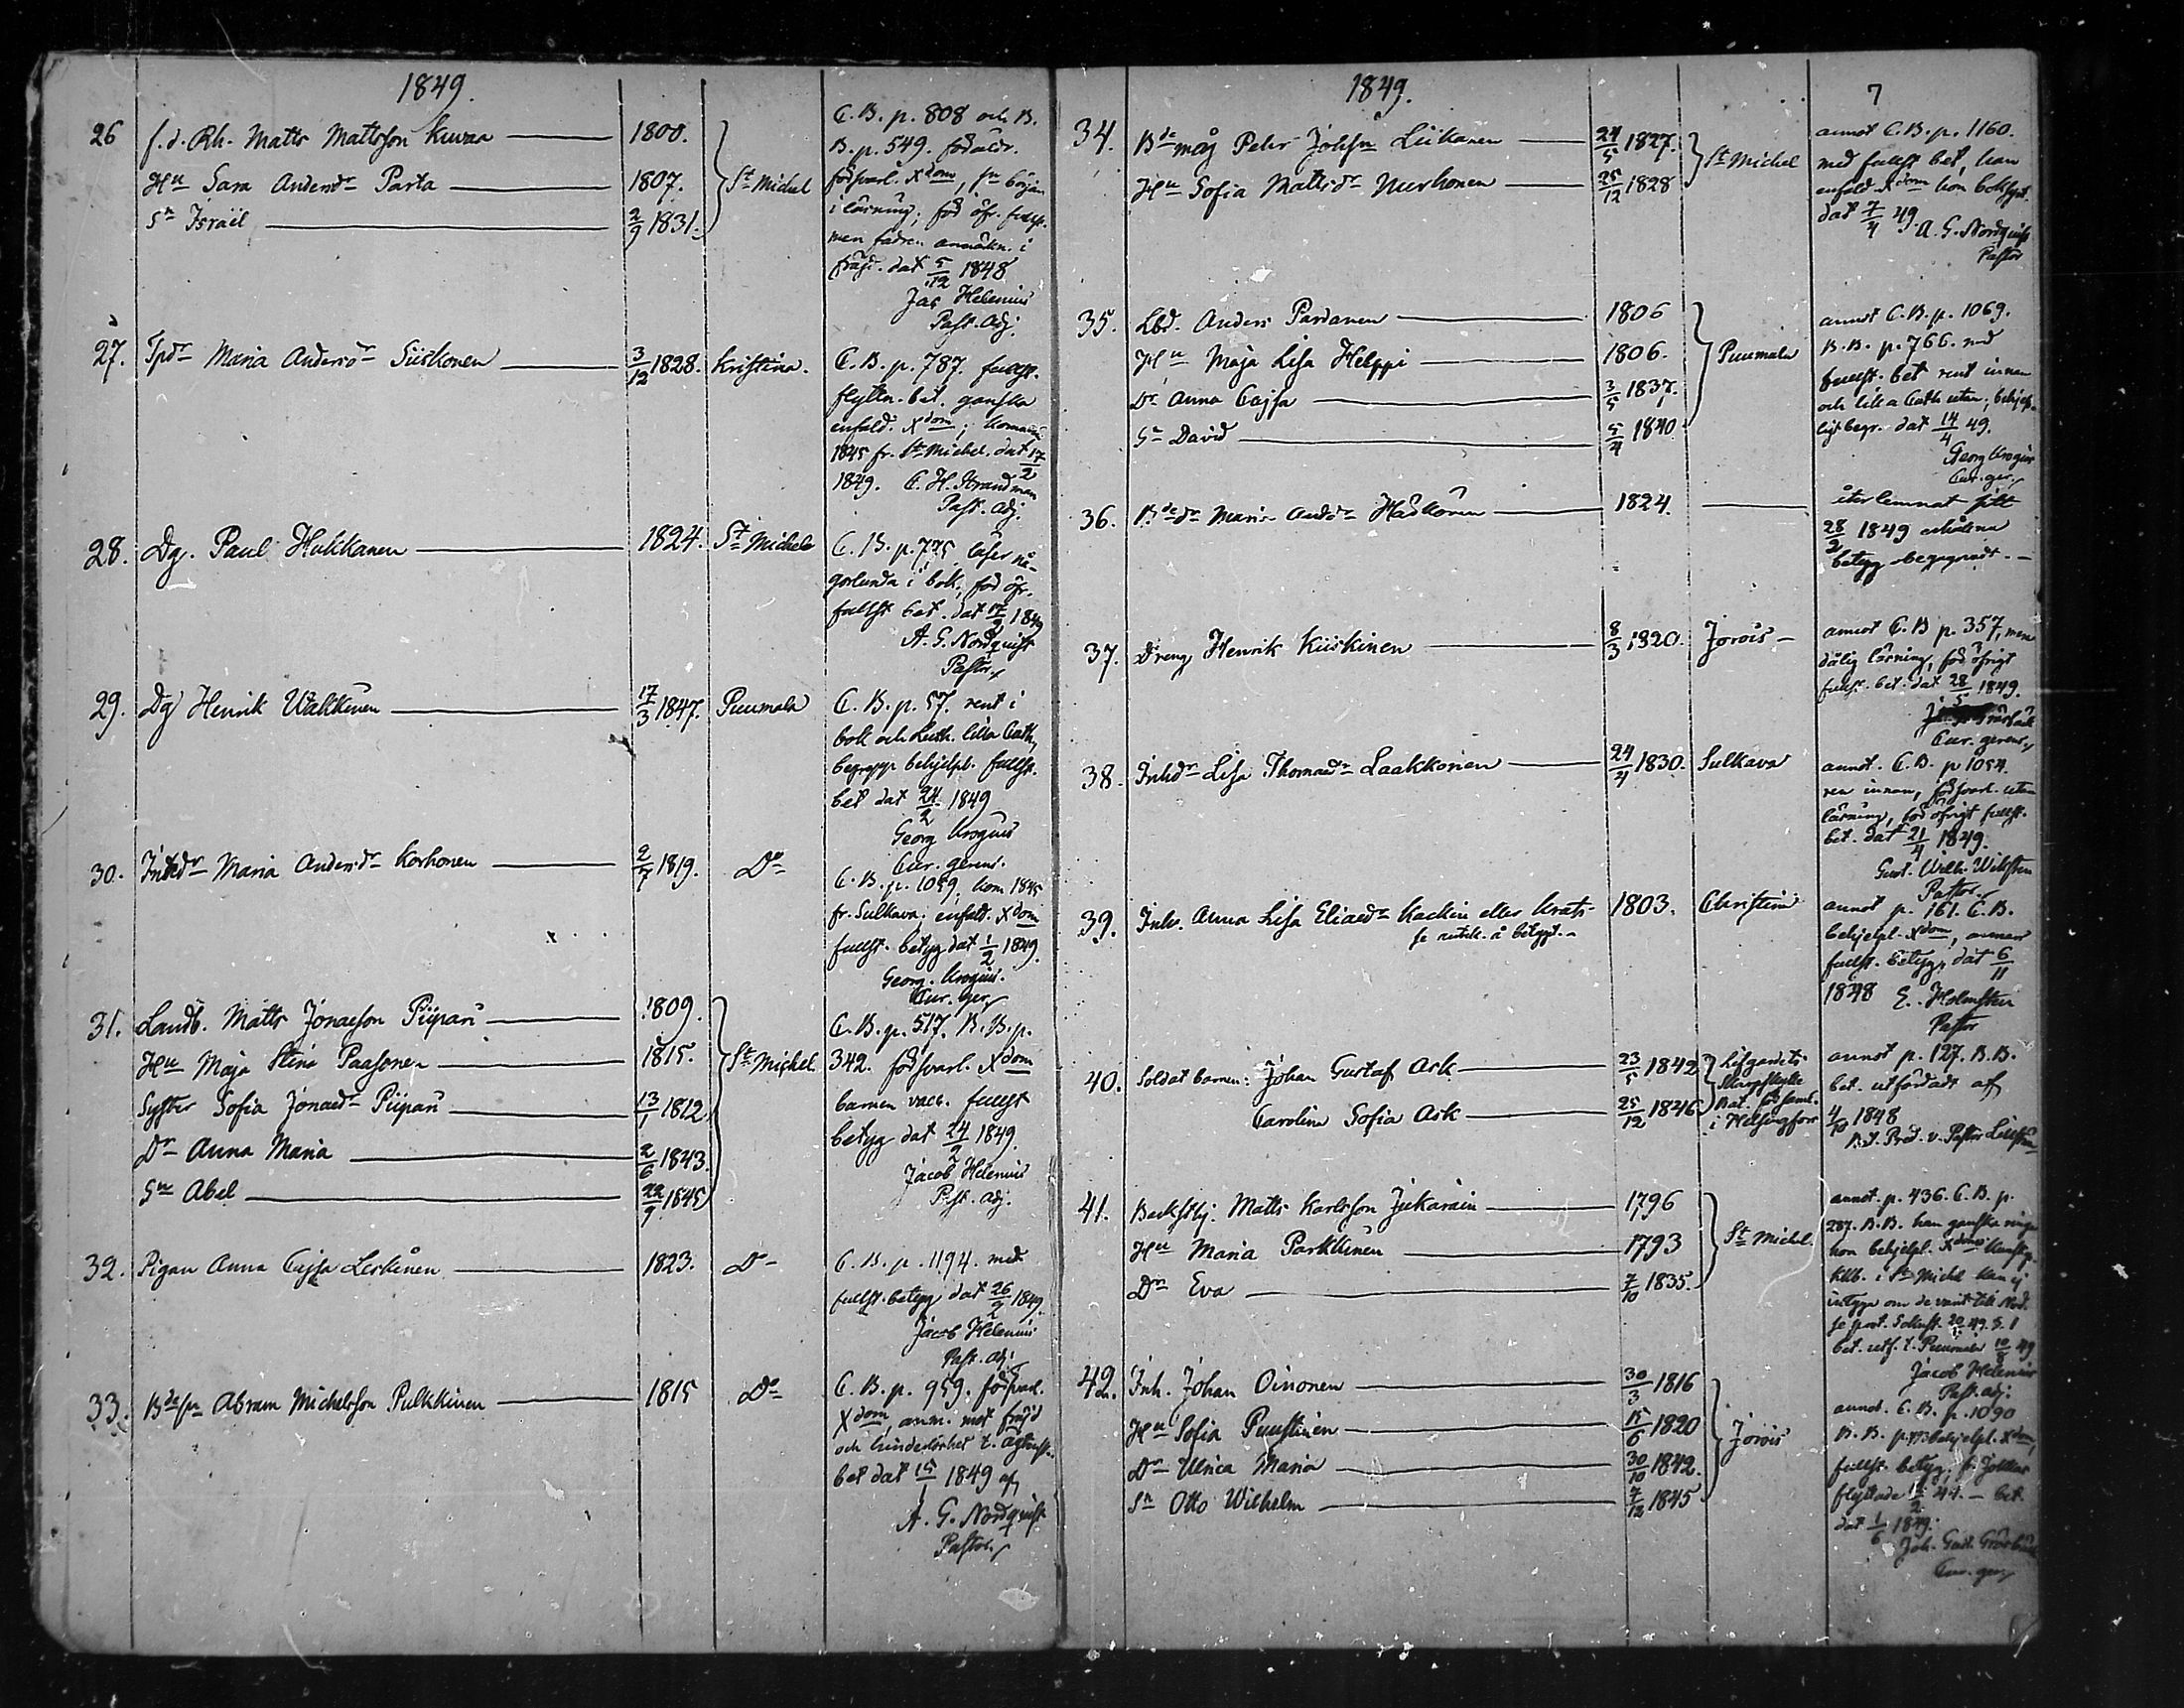 1849.
26 f.d. Rh. Matts Mattsson Kuvaa 1800.
Hu Sara Andersdr Parta 1807. St Michel
Sn Israël 2/9 1831.
C. B. p. 808 och B.
B. p. 549. föräldr.
försvarl. Xdom, sn börjar
i läsning; för öfr. fullst.
men fadren anmärkn. i
frejd. dat 5/12 1848
Jac Helenius
Past. adj.
27. Tpdr Maria Andersdr Siiskonen 3/12 1828. Kristina.
C. B. p. 787. fullst.
flyttn. bet. ganska
enfald. Xdom; kommen
1845 fr. St Michel. dat 17/2
1849. C. H. Strandman
Past. adj.
28. Dg. Paul Hukkanen 1824. St Michel
C. B. p. 775 läser nå-
gorlunda i bok, för öfr.
fullst bet. dat 17/2 1849
A. G. Nordqvist
Pastor
29. Dg Henrik Walkkinen 17/3 1847. Puumala
C. B. p. 57. rent i
bok och Luth. lilla Cath,
begrepp behjelpl. fullst.
bet dat 24/2 1849
Georg Krogius
Cur. gerens.
30. Inhdr Maria Andersdr Korhonen 2/7 1819. Do
C. B. p. 1059, kom 1845
fr. Sulkava; enfald. Xdom
fullst. betyg dat 1/2 1849.
Georg. Krogius.
Cur. ger.
31. Landb. Matts Jonasson Piipari 1809.
Hu Maja Stina Paasonen 1815. St Michel
Syster Sofia Jonaedr Piipari 13/1 1812
Dr Anna Maria 2/6 1843.
Sn Abel 22/9 1845
C. B. p. 517. B. B. p.
342. försvarl. Xdom
barnen vacc. fullst
betyg dat 24/2 1849.
Jacob Helenius
Past. adj.
32. Pigan Anna Cajsa Leskinen 1823. Do
C. B. p. 1194. med
fullst. betyg dat 26/2 1849.
Jacob Helenius
Past. adj.
33. Bdesn Abram Michelsson Pulkkinen 1815 Do
C. B. p. 959. försvarl.
Xdom, anm. mot frejd
och hinderlöshet t. ägtensk.
bet dat 15/1 1849 af
A. G. Nordqvist
Pastor
1849. 7
34. Bdemåg Petter Johsn Liikanen 24/5 1827.
Hu Sofia Mattsdr Nurhonen 25/12 1828 St Michel
annot C. B. p. 1160.
med fullst bet, han
enfald Xdom hon
dat 7/4 49. A. G. Nordqvist
Pastor
35. Lbd. Anders Pardanen 1806
Hu Maja Lisa Helppi 1806. Puumala
Dr Anna Cajsa 3/5 1837.
Sn David 5/4 1840
annot C. B. p. 1069.
B. B. p. 766. med
fullst. bet rent innan
och lilla Cath utan; behjelp-
ligt begr. dat 14/4 49.
Georg Krogius
Cur. ger.
36. Bdedr Maria Andsdr 1824.
återlemnat sitt
28/2 1849 erhållna
betyg obegagnadt.
37. Dreng Henrik Kiiskinen 8/3 1820. Jorois
annot C. B p. 357, men
dålig läsning, för öfrigt
fullst. bet. dat 28/5 1849.
Cur. gerens
38. Inhdr Lisa Thomaedr Laakkonen 24/4 1830. Sulkava
annot. C. B. p 1054.
ren innan, försvarl. utan
läsning, för öfrigt fullst.
bet. dat 21/4 1849.
Gust. Wilh.
Pastor
39. Inh. Anna Lisa Eliaedr Kackin eller Krats 1803. Christina
se anteckn. å betyget.
annot p. 161. C. B.
behjelpl. Xdom, annars
fullst. betyg, dat 6/11
1848 E. Holmsten
Pastor
40. Soldat barnen: Johan Gustaf Ask 23/5 1842
Carolina Sofia Ask 25/12 1846
Lifgardets
Skarpskytte
Bat. församl.
i Helsingfors
annot p. 127. B. B.
bet. utfärdadt af
4/10 1848
41. Backstbj. Matts Karlsson Jukarain 1796
Hu Maria Parkkinen 1793 St Michel.
Dr Eva 7/10 1835.
annot. p. 436. C. B. p.
287. B. B. han ganska ringa
hon behjelpl. Xdom
i St Michel kan ej
intyga om de varit till Nattv.
bet. utf. t. Puumala 49
Jacob Helenius
Past. adj.
42. Inh. Johan Oinonen 30/3 1816
Hu Sofia Puustinen 15/6 1820 Jorois
Dr Ulrica Maria 30/10 1842.
Sn Otto Wilhelm 7/12 1845
annot. C. B. p. 1090
B. B. p. behjelpl. Xdom,
fullst. betyg,
flyttade bet.
dat 1/6 1849.
Joh. Gust.
Cur. ger